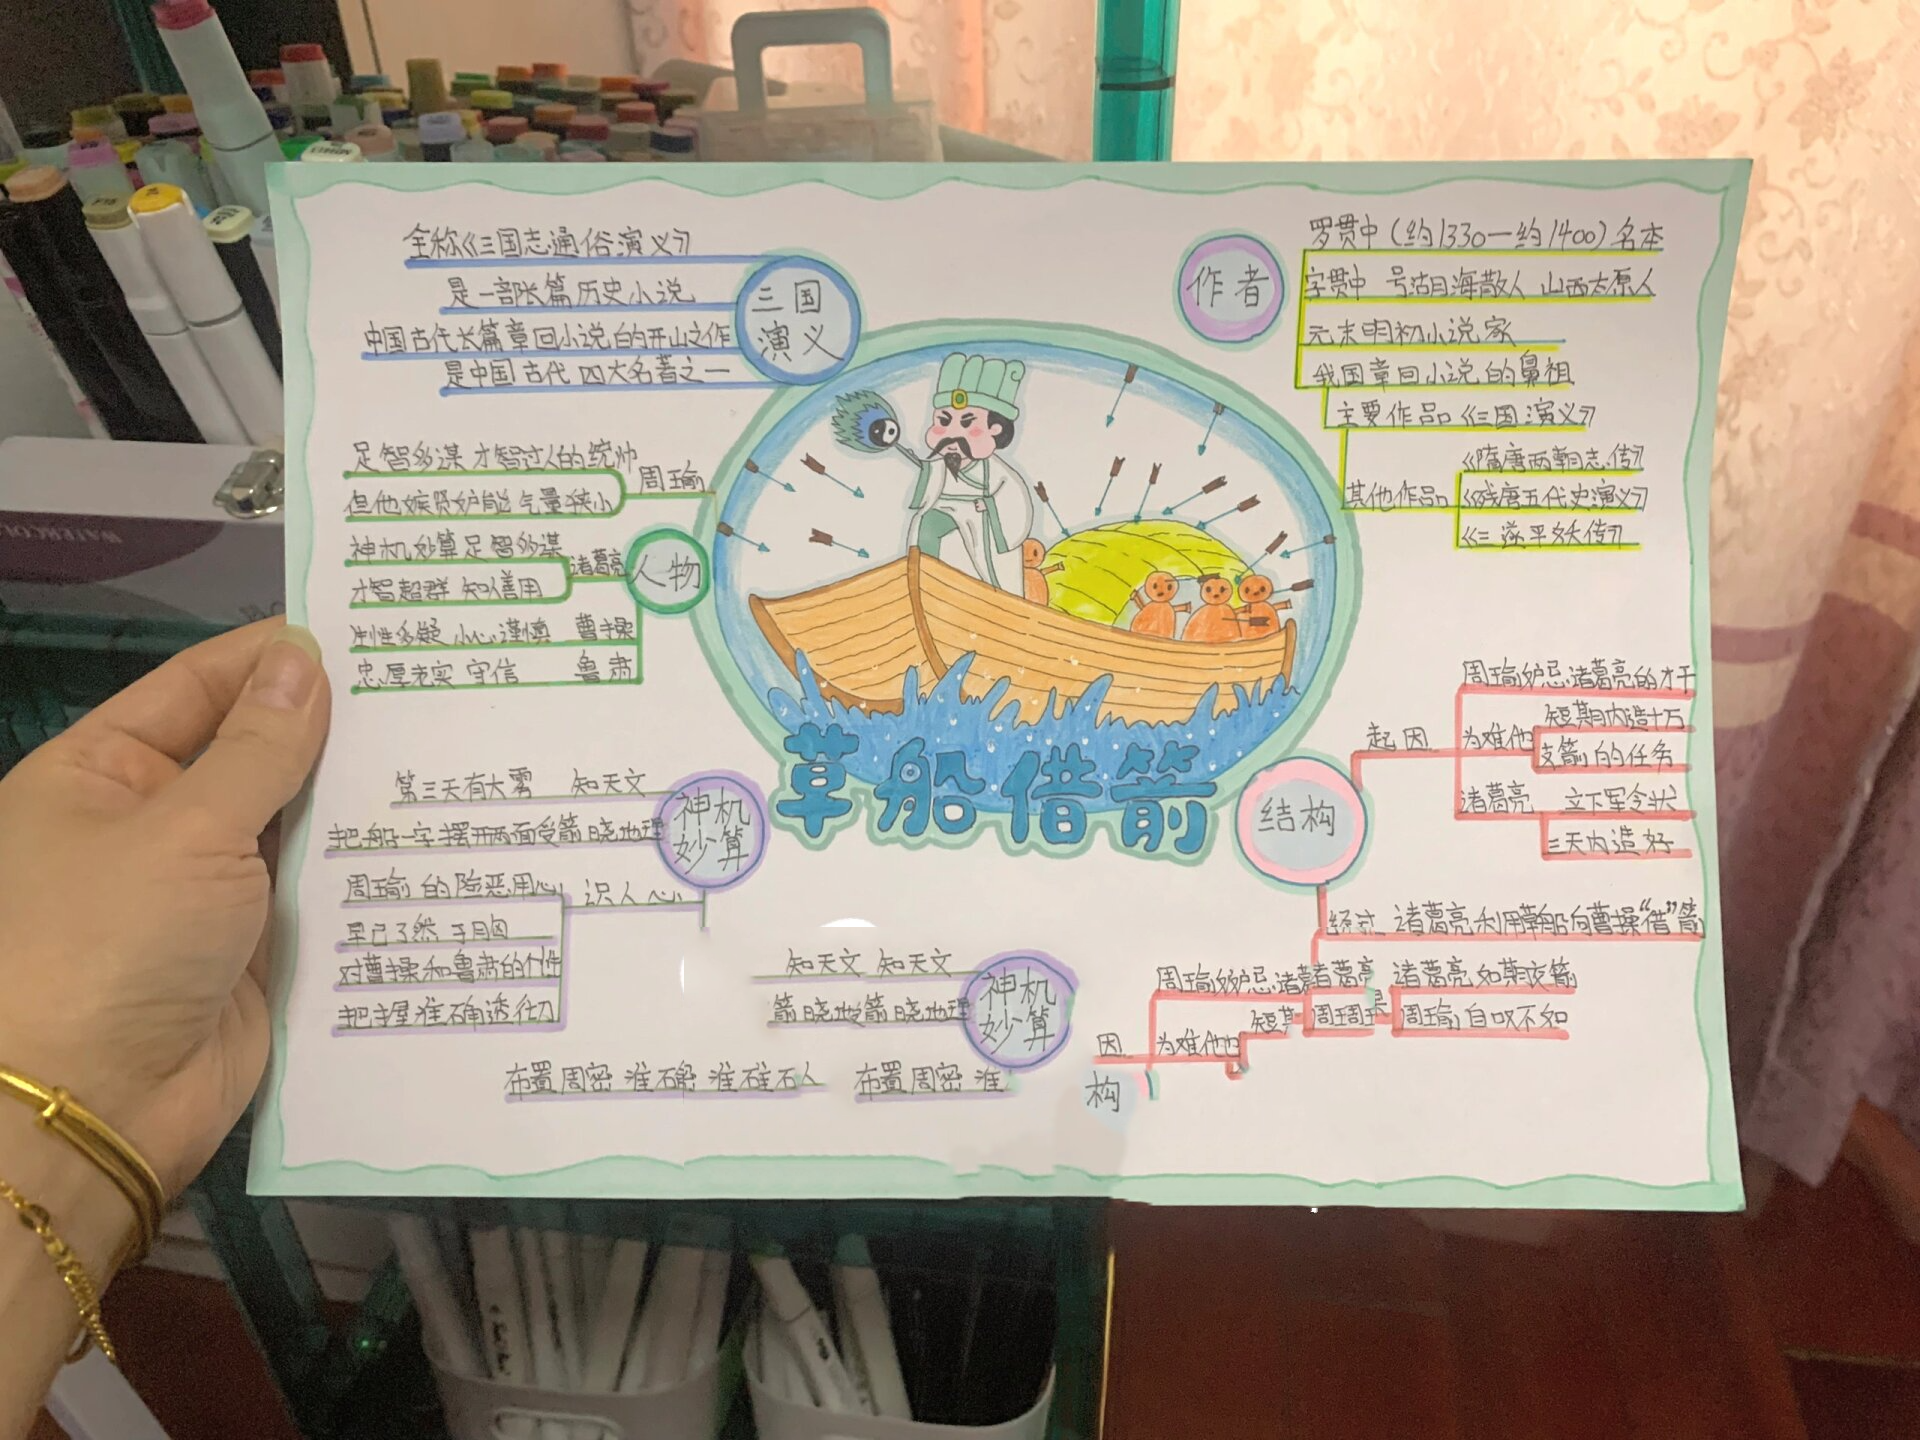 全称《三国志通俗演义》
是一部长篇历史小说
中国古代长篇章回小说的开山之作
是中国古代四大名著之一
三国
演义
作者
罗贯中（约1330—约1400）名本
字贯中 号湖海散人 山西太原人
元末明初小说家
我国章回小说的鼻祖
主要作品《三国演义》
其他作品
《隋唐两朝志传》
《残唐五代史演义》
《三遂平妖传》
足智多谋 才智过人的统帅
但他嫉贤妒能 气量狭小
周瑜
神机妙算足智多谋
才智超群 知人善用
诸葛亮
人物
生性多疑 小心谨慎 曹操
忠厚老实 守信 鲁肃
草船借箭
第三天有大雾 知天文
把船一字摆开两面受箭 晓地理
神机
妙算
周瑜的险恶用心
早已了然于胸
识人心
对曹操和鲁肃的个性
把握准确透彻
结构
起因
周瑜妒忌诸葛亮的才干
为难他
短期内造十万
支箭的任务
诸葛亮 立下军令状
三天内造好
经过 诸葛亮利用草船向曹操“借”箭
知天文 知天文
箭晓地 箭晓地理
神机
妙算
布置周密 准确 准 布置周密 准
周瑜妒忌诸葛亮
诸葛亮如期交箭
短期
周瑜自叹不如
因 为难他
构